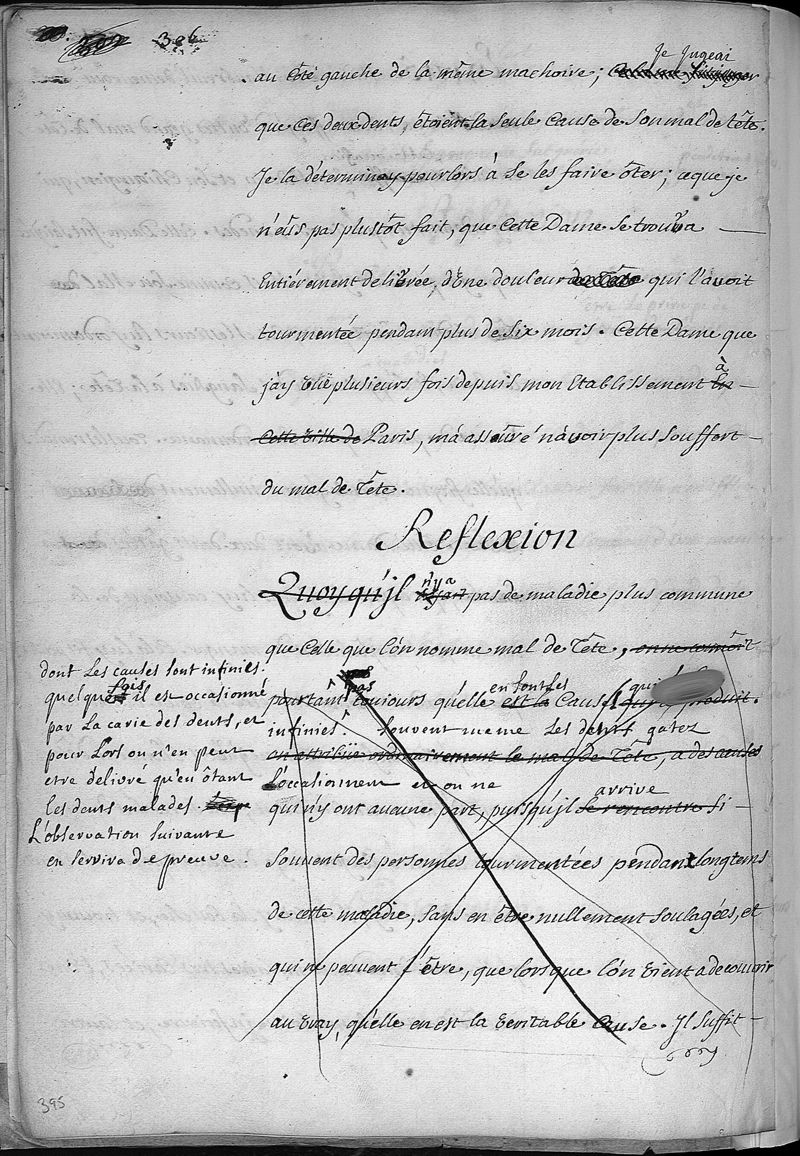 306
Je Jugeai
au Côté gauche de la même machoire;
que ces deux dents, étoient la seule cause de son mal de tête.
Je la déterminay pourlors à se les faire ôter; a que je
n'eûs pas plustôt fait, que Cette Dame se trouva
Entiérement delivrée, d'Une douleur de Tête qui l'avoit
tourmentée pendant plus de Six mois. Cette Dame que
à
j'ay Vüe plusieurs fois depuis mon Etablissement En
Cette Ville de Paris, m'a assûré n'avoir plus souffert
du mal de Tête.
Reflexion
n'y a
Quoyqu'jl n'y ait pas de maladie plus commune
que Celle que l'on nomme mal de Tête, on ne connoît
pas en sont les qui
pourtant toujours qu'elle est la Cause qui le produit.
infinies. Souvent meme Les dents gatez
on attribüe ordinairement le mal de Tête, a des causes
L'occasionnent et on ne
arrive
qui n'y ont aucune part, puisqu'jl se rencontre si
souvent des personnes tourmentées pendant longtems
de cette maladie, sans en être nullement soulagées, et
qui ne peuvent l'être, que lorsque l'on vient a decouvrir
au vray, qu'elle en est la veritable Cause. Jl suffit
dont Les causes sont infinies.
quelque fois il est occasionné
par La carie des dents, et
pour Lors on n'en peut
etre délivré qu'en ôtant
les dents malades.
L'observation suivante
en servira de preuve.
395